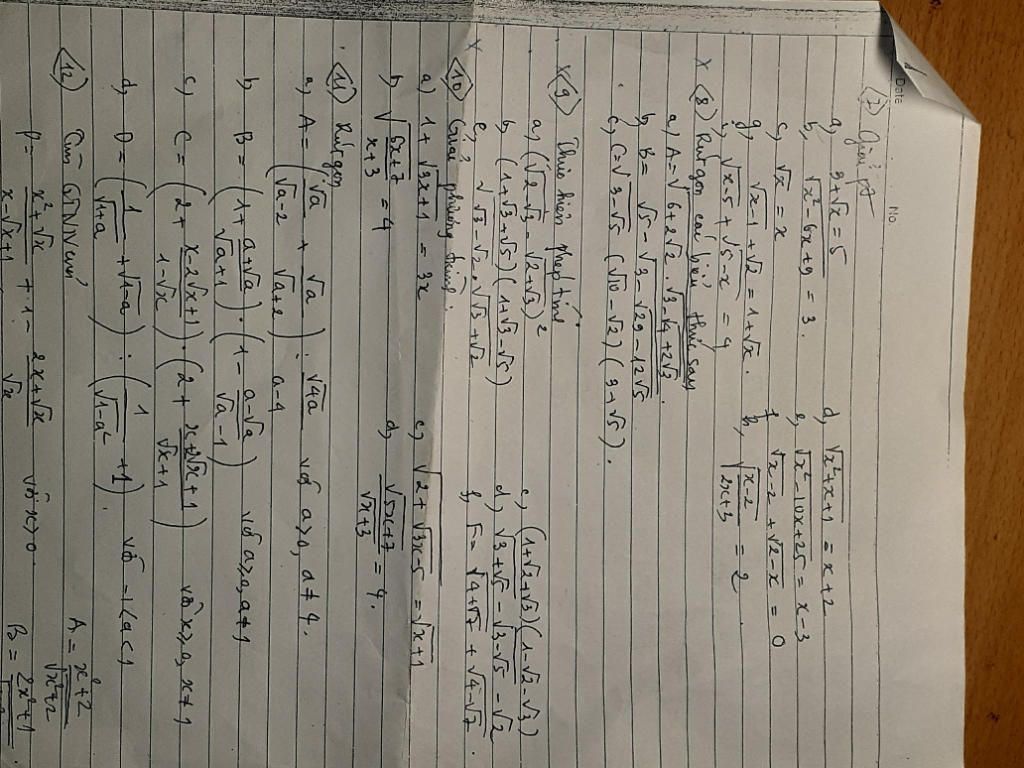 No.
Date
1
<7> Giải pt
a, 3+√x = 5
d, √(x²+x+1) = x+2
b, √(x²-6x+9) = 3.
e, √(x²-10x+25) = x-3
c, √x = x
f, √(x-2) + √(2-x) = 0
g, √(x-1) + √2 = 1+√x.
h, √((x-2)/(2x+3)) = 2
i, √(x-5) + √(5-x) = 9
x <8> Rút gọn các biểu thức sau
a, A = √(6+2√2.√(3-√(4+2√3)))
b, B = √(√5-√(3-√(29-12√5)))
c, C = √(3-√5) (√10-√2) (3+√5).
x <9> Thực hiện phép tính
a, (√(2-√3) - √(2+√3))²
c, (1+√2+√3)(1-√2-√3)
b, (1+√3+√5)(1+√3-√5)
d, √(3+√5) - √(3-√5) - √2
e, √(√3-√2).√(√3+√2)
f, F = √(4+√7) + √(4-√7).
x
<10> Giải phương trình.
a) 1+√(3x+1) = 3x
c, √(2+√(3x-5)) = √(x+1)
b, √((5x+7)/(x+3)) = 4
d, √(5x+7)/√(x+3) = 4.
<11> Rút gọn
a, A = (√a/(√a-2) + √a/(√a+2)) : √(4a)/(a-4) với a>0, a≠4.
b, B = (1+ (a+√a)/(√a+1)).(1- (a-√a)/(√a-1)) với a≥0, a≠1
c, C = (2+ (x-2√x+1)/(1-√x)).(2+ (x+2√x+1)/(√x+1)) với x≥0, x≠1
d, D = (1/√(1+a) + √(1-a)) : (1/√(1-a²) +1) với -1<a<1
<12> Tìm GTNN của
P = (x²+√x)/(x-√x+1) + 1 - (2x+√x)/√x với x>0
A = (x²+2)/√(x²+2)
B = 2x²+1